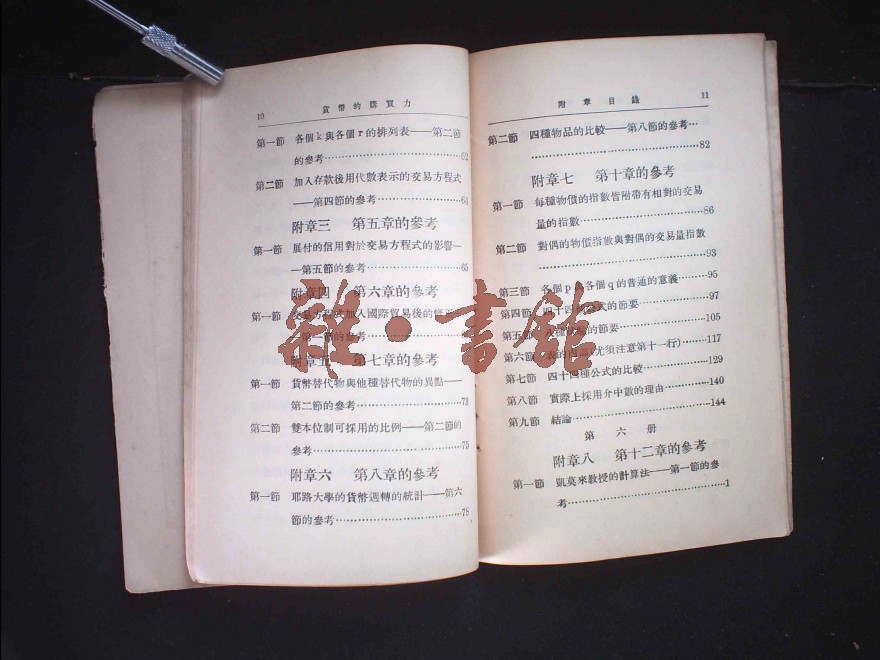 10 貨幣的購買力
第一節 各個k與各個r的排列表——第二節
的參考……62
第二節 加入存款後用代數表示的交易方程式
——第四節的參考……64
附章三 第五章的參考
第一節 展付的信用對於交易方程式的影響—
—第五節的參考……65
附章四 第六章的參考
第一節 交易方程式加入國際貿易後的
第一節的參考
附章五 第七章的參考
第一節 貨幣替代物與他種替代物的異點——
第二節的參考……73
第二節 雙本位制可採用的比例——第二節的
參考……75
附章六 第八章的參考
第一節 耶路大學的貨幣週轉的統計——第六
節的參考……78
附章目錄 11
第二節 四種物品的比較——第八節的參考…
……82
附章七 第十章的參考
第一節 每種物價的指數皆附帶有相對的交易
量的指數……86
第二節 對偶的物價指數與對偶的交易量指數
……93
第三節 各個p與各個q的普通的意義……95
第四節 四十四種公式的節要……97
第五節 的節要……105
第六節 (尤須注意第十一行)……117
第七節 四十四種公式的比較……129
第八節 實際上採用介中數的理由……140
第九節 結論……144
第六册
附章八 第十二章的參考
第一節 凱莫來教授的計算法——第一節的參
考……1
雜·書館